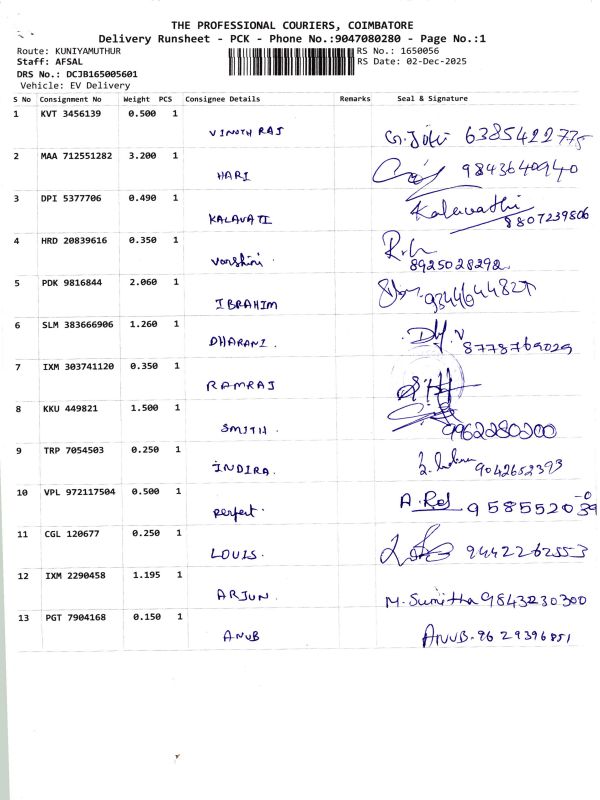 THE PROFESSIONAL COURIERS, COIMBATORE
Delivery Runsheet - PCK - Phone No.:9047080280 - Page No.:1
Route: KUNIYAMUTHUR RS No.: 1650056
Staff: AFSAL RS Date: 02-Dec-2025
DRS No.: DCJB165005601
Vehicle: EV Delivery
S No Consignment No Weight PCS Consignee Details Remarks Seal & Signature
1 KVT 3456139 0.500 1
VINOTH RAJ 6385422775
2 MAA 712551282 3.200 1
HARI 9843640940
3 DPI 5377706 0.490 1
KALAVATI Kalavathi
8807239806
4 HRD 20839616 0.350 1
Varshini.
8925028292
5 PDK 9816844 2.060 1
IBRAHIM
6 SLM 383666906 1.260 1
DHARANI.
8778769029
7 IXM 303741120 0.350 1
RAMRAJ
8 KKU 449821 1.500 1
SMITH. 9962280200
9 TRP 7054503 0.250 1
INDIRA. 9042652393
10 VPL 972117504 0.500 1
Perfect.
11 CGL 120677 0.250 1
LOUIS. 9442262553
12 IXM 2290458 1.195 1
ARJUN. M. Sumitha 9843230300
13 PGT 7904168 0.150 1
ANUB ANUB-9629396851